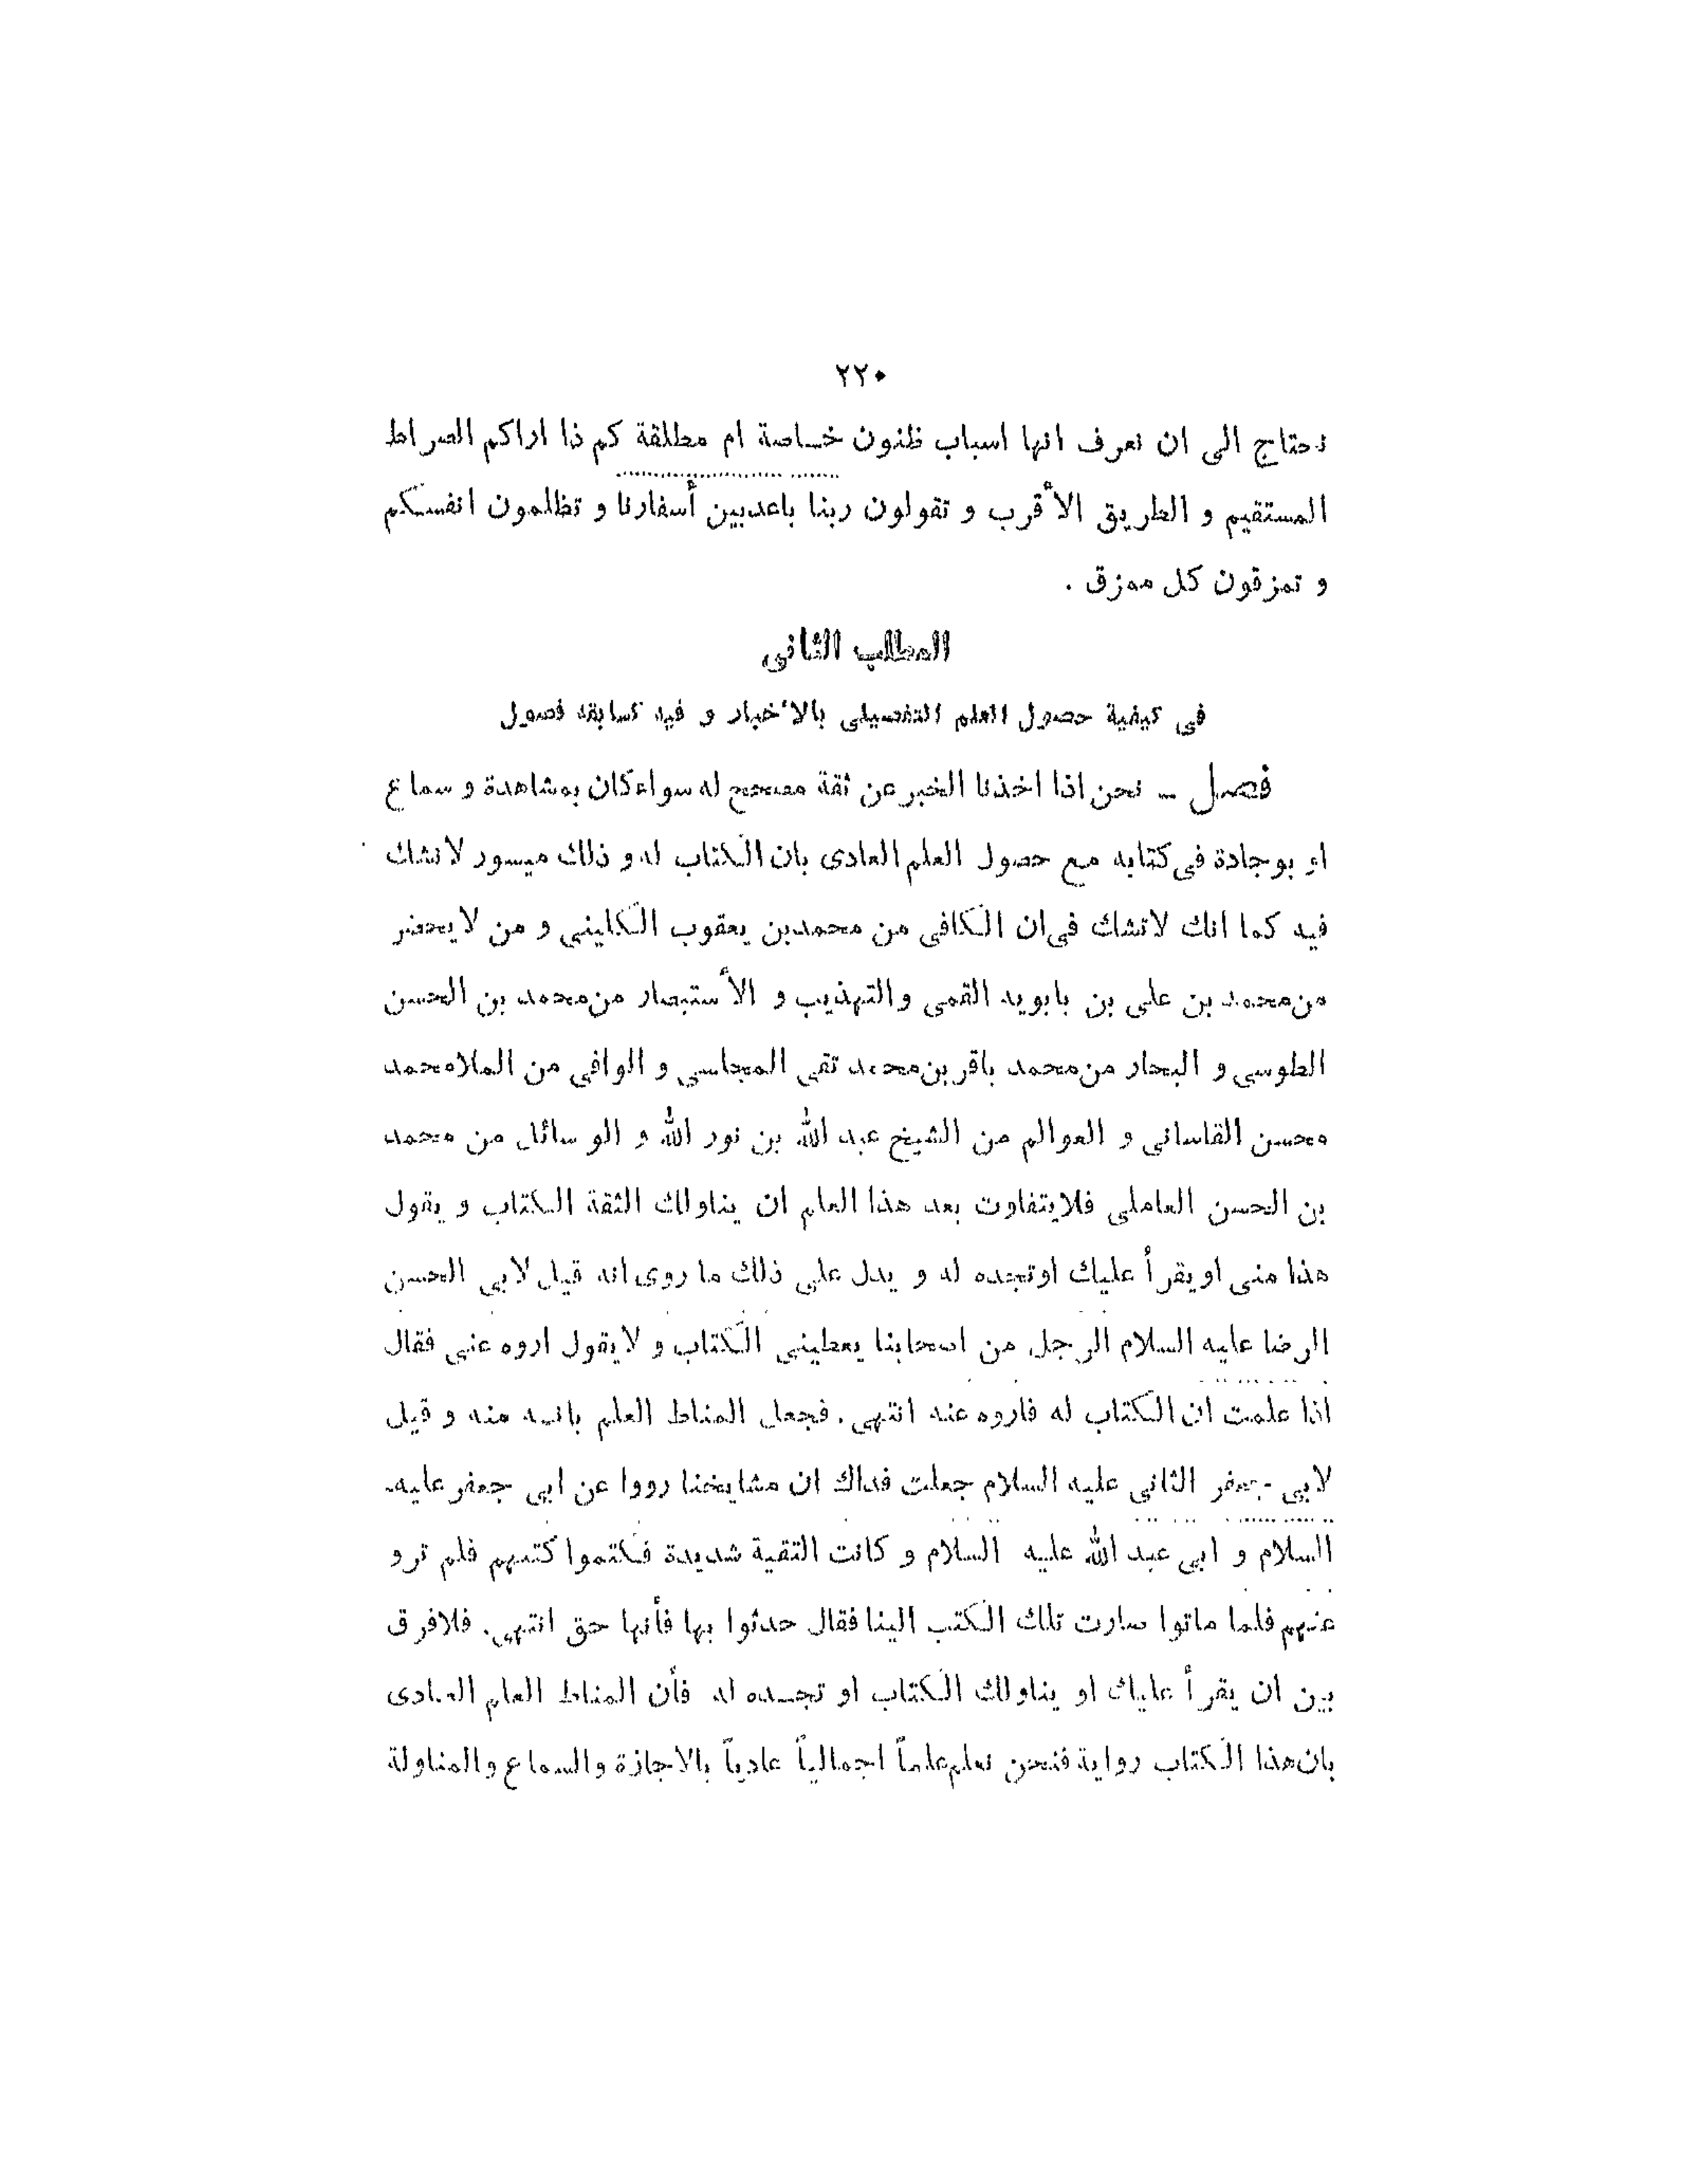 ٢٢٠
نحتاج الى ان نعرف انها اسباب ظنون خاصة ام مطلقة كم ذا اراكم الصراط
المستقيم و الطريق الأقرب و تقولون ربنا باعدبين أسفارنا و تظلمون انفسكم
و تمزقون كل ممزق .
المطلب الثانى
فى كيفية حصول العلم التفصيلى بالأخبار و فيه كسابقه فصول
فصل ــ نحن اذا اخذنا الخبر عن ثقة مصحح له سواء كان بمشاهدة و سماع
او بوجادة فى كتابه مع حصول العلم العادى بان الكتاب له و ذلك ميسور لانشك
فيه كما انك لاتشك فى ان الكافى من محمدبن يعقوب الكلينى و من لايحضر
من محمد بن على بن بابويه القمى والتهذيب و الأستبصار من محمد بن الحسن
الطوسى و البحار من محمد باقر بن محمد تقى المجلسى و الوافى من الملامحمد
محسن القاسانى و العوالم من الشيخ عبد الله بن نور الله و الوسائل من محمد
بن الحسن العاملى فلايتفاوت بعد هذا العلم ان يناولك الثقة الكتاب و يقول
هذا منى او يقرأ عليك او تجده له و يدل على ذلك ما روى انه قيل لابى الحسن
الرضا عليه السلام الرجل من اصحابنا يعطينى الكتاب و لايقول اروه عنى فقال
اذا علمت ان الكتاب له فاروه عنه انتهى. فجعل المناط العلم بانه منه و قيل
لابى جعفر الثانى عليه السلام جعلت فداك ان مشايخنا رووا عن ابى جعفر عليه
السلام و ابى عبد الله عليه السلام و كانت التقية شديدة فكتموا كتبهم فلم ترو
عنهم فلما ماتوا صارت تلك الكتب الينا فقال حدثوا بها فأنها حق انتهى. فلافرق
بين ان يقرأ عليك او يناولك الكتاب او تجده له فأن المناط العلم العادى
بان هذا الكتاب رواية فنحن نعلم علماً اجمالياً عادياً بالاجازة والسماع والمناولة